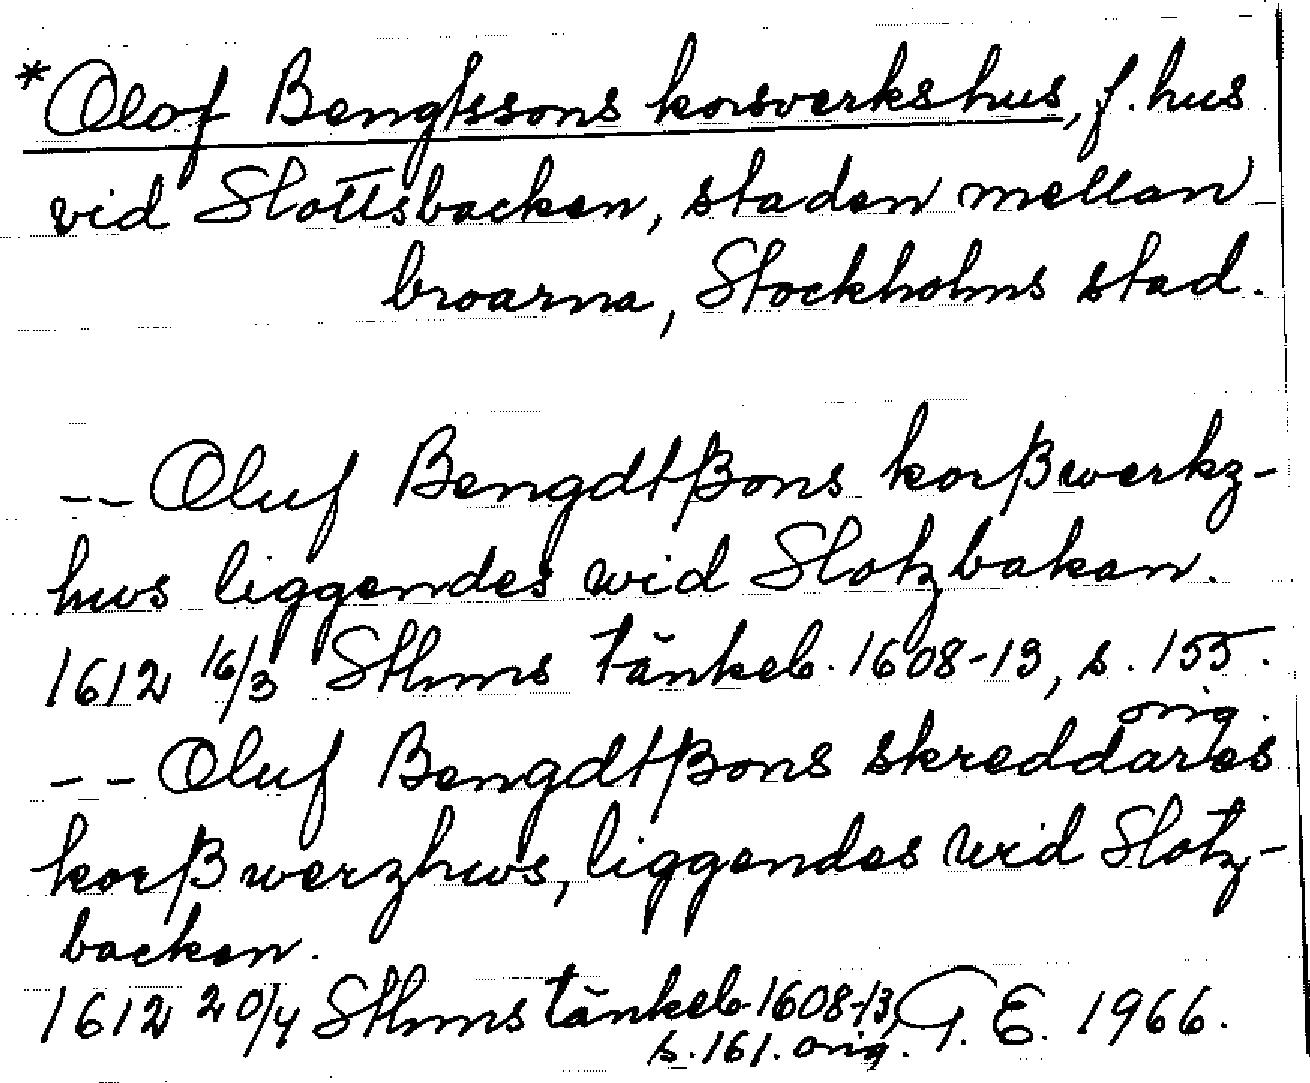 *Olof Bengtssons korsverkshus, f. hus
vid Slottsbacken, staden mellan
broarna, Stockholms stad.
-- Oluf Bengdtßons korßwerkz-
hws liggendes wid Slotzbakan.
1612 16/3 Sthms tänkeb. 1608-13, s. 155.
orig.
-- Oluf Bengdtßons skreddares
korßwerzhws, liggendes wid Slotz-
backen.
1612 20/4 Sthms tänkeb 1608-13, G. E. 1966.
s. 161. orig.